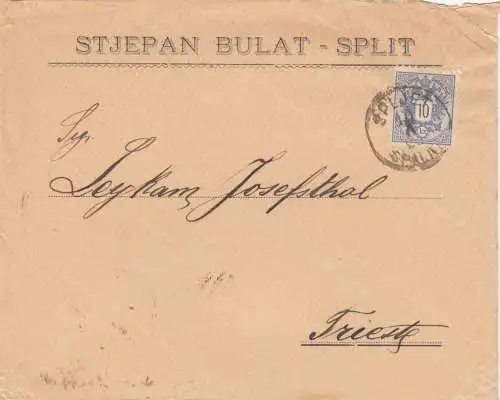 STJEPAN BULAT - SPLIT
10
SPLJET
SPALATO
Sig.
Leykam Josefsthal
Trieste